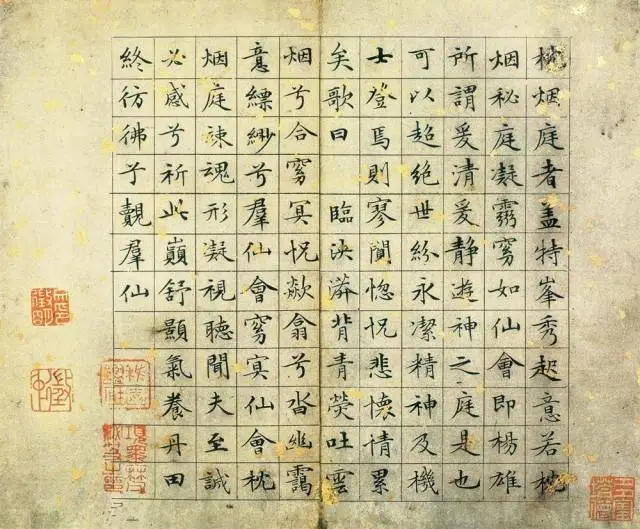 枕烟庭者盖特峯秀起意若枕
烟秘庭凝靈窅如仙會即楊雄
所謂爰清爰静遊神之庭是也
可以超絶世紛永潔精神及機
士登焉則寥闃惚怳悲懷情累
矣歌曰 臨泱漭背青熒吐雲
烟兮合窅冥怳欻翕兮沓幽靄
意縹緲兮羣仙會窅冥仙會枕
烟庭竦魂形凝視聽聞夫至誠
必感兮祈此巔舒顥氣養丹田
終彷彿乎覿羣仙